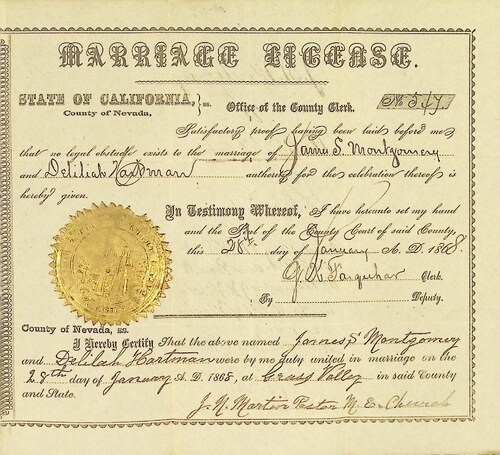 MARRIAGE LICENSE.
STATE OF CALIFORNIA, } ss. Office of the County Clerk. No 517
County of Nevada,
Satisfactory proof having been laid before me
that no legal obstacle exists to the marriage of James S. Montgomery
and Delilah Hartman authority for the celebration thereof is
hereby given.
In Testimony Whereof, I have hereunto set my hand
and the Seal of the County Court of said County,
this 28th day of January A. D. 1868.
Farquhar Clerk.
By Deputy.
County of Nevada, ss.
I Hereby Certify That the above named James S Montgomery
and Delilah Hartman were by me duly united in marriage on the
28th day of January A. D. 1868, at Grass Valley in said County
and State.
J. N. Martin Pastor M. E. Church